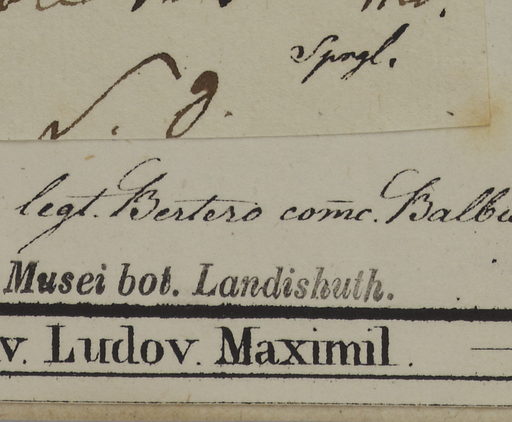 Sprgl.
S. g.
legt. Bertero com̄c. Balbi
Musei bot. Landishuth.
v. Ludov. Maximil.